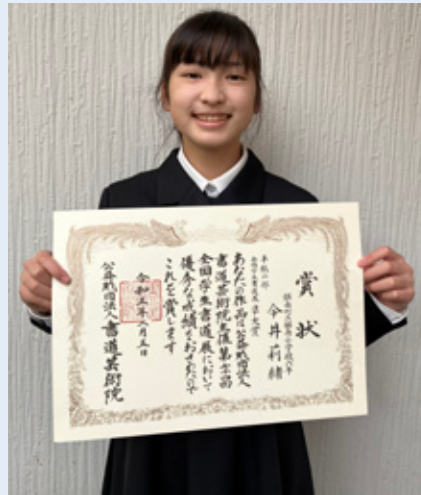 賞状
今井莉緒
あなたの作品は公益財団法人
書道芸術院主催第
全国学生書道展において
優秀な成績をおさめたので
これを賞します
令和三年八月五日
公益財団法人書道芸術院